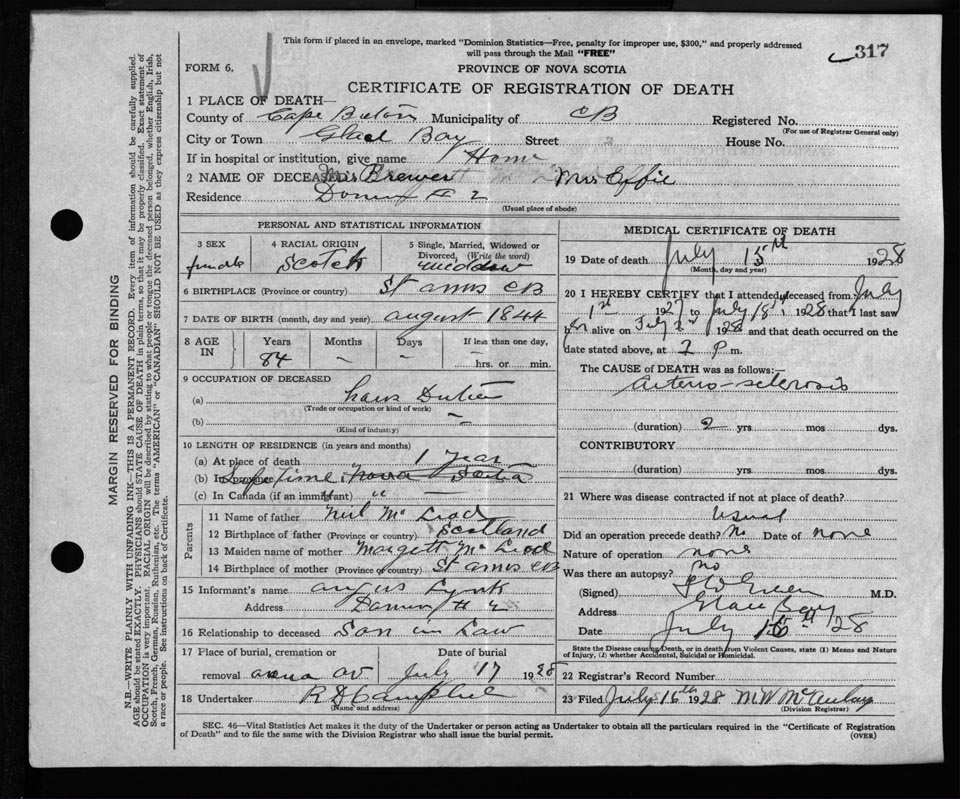 This form if placed in an envelope, marked "Dominion Statistics—Free, penalty for improper use, $300," and properly addressed
will pass through the Mail "FREE"
317
FORM 6.
PROVINCE OF NOVA SCOTIA
CERTIFICATE OF REGISTRATION OF DEATH
1 PLACE OF DEATH—
County of Cape Breton Municipality of CB Registered No.
(For use of Registrar General only)
City or Town Glace Bay Street House No.
If in hospital or institution, give name Home
2 NAME OF DECEASED Brewer Mrs Effie
Residence Domin # 2
(Usual place of abode)
PERSONAL AND STATISTICAL INFORMATION
3 SEX
female
4 RACIAL ORIGIN
Scotch
5 Single, Married, Widowed or
Divorced, (Write the word)
widdow
6 BIRTHPLACE (Province or country) St anns CB
7 DATE OF BIRTH (month, day and year) august 1844
8 AGE IN
Years 84
Months –
Days –
If less than one day,
hrs. or min.
9 OCCUPATION OF DECEASED
(a) hous Duties
(Trade or occupation or kind of work)
(b) –
(Kind of industry)
10 LENGTH OF RESIDENCE (in years and months)
(a) At place of death 1 Year
(b) In province Life time Nova Scotia
(c) In Canada (if an immigrant) " –
Parents
11 Name of father Neil Mc Leod
12 Birthplace of father (Province or country) Scotland
13 Maiden name of mother Margett Mc Leod
14 Birthplace of mother (Province or country) St anns CB
15 Informant's name angus Lynk
Address Domin # 2
16 Relationship to deceased Son in Law
17 Place of burial, cremation or removal
Date of burial
July 17 1928
18 Undertaker R D Campbell
MEDICAL CERTIFICATE OF DEATH
19 Date of death July 15th 1928
(Month, day and year)
20 I HEREBY CERTIFY that I attended deceased from July
1st 1927 to July 1928 that I last saw
her alive on 1928 and that death occurred on the
date stated above, at 2 P m.
The CAUSE of DEATH was as follows:—
arterio-sclerosis
(duration) 2 yrs. mos. dys.
CONTRIBUTORY
(duration) yrs. mos. dys.
21 Where was disease contracted if not at place of death?
usual
Did an operation precede death? No Date of none
Nature of operation none
Was there an autopsy? no
(Signed) Green M.D.
Address Glace Bay
Date July 16th 28
State the Disease causing Death, or in death from Violent Causes, state (1) Means and Nature
of Injury, (2) whether Accidental, Suicidal or Homicidal.
22 Registrar's Record Number
23 Filed July 16th 1928 M W McAulay
(Division Registrar)
SEC. 46—Vital Statistics Act makes it the duty of the Undertaker or person acting as Undertaker to obtain all the particulars required in the "Certificate of Registration
of Death" and to file the same with the Division Registrar who shall issue the burial permit.
(OVER)
MARGIN RESERVED FOR BINDING
N.B.—WRITE PLAINLY WITH UNFADING INK—THIS IS A PERMANENT RECORD. Every item of information should be carefully supplied.
AGE should be stated EXACTLY. PHYSICIANS should STATE CAUSE OF DEATH in plain terms, so that it may be properly classified. Exact statement of
OCCUPATION is very important. RACIAL ORIGIN will be described by stating to what people or tongue the deceased person belonged, whether English, Irish,
Scotch, French, German, Russian, Ruthenian, etc. The terms "AMERICAN" or "CANADIAN" SHOULD NOT BE USED as they express citizenship but not
a race or people. See instructions on back of Certificate.